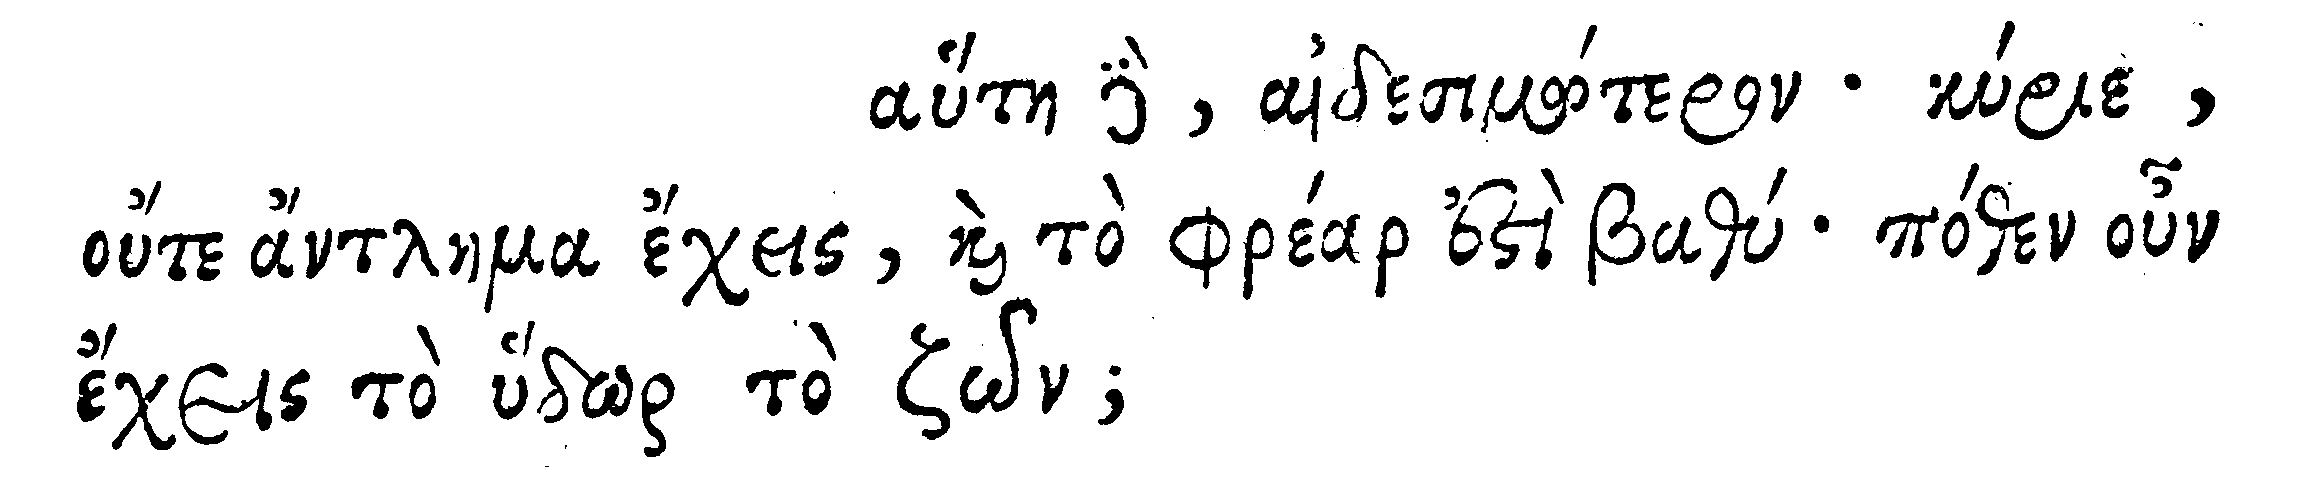 αὕτη δὲ, αἰδεσιμώτερον· κύριε,
οὔτε ἄντλημα ἔχεις, ϗ̀ τὸ φρέαρ ἐστὶ βαθύ· πόθεν οὖν
ἔχεις τὸ ὕδωρ τὸ ζῶν;